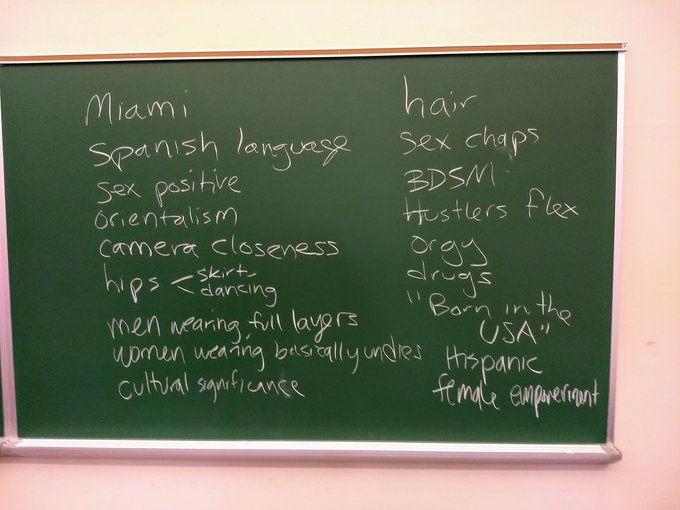 Miami
Spanish language
sex positive
orientalism
camera closeness
hips < skirts
dancing
men wearing full layers
women wearing basically undies
cultural significance
hair
sex chaps
BDSM
Hustlers flex
orgy
drugs
"Born in the
USA"
Hispanic
female empowerment